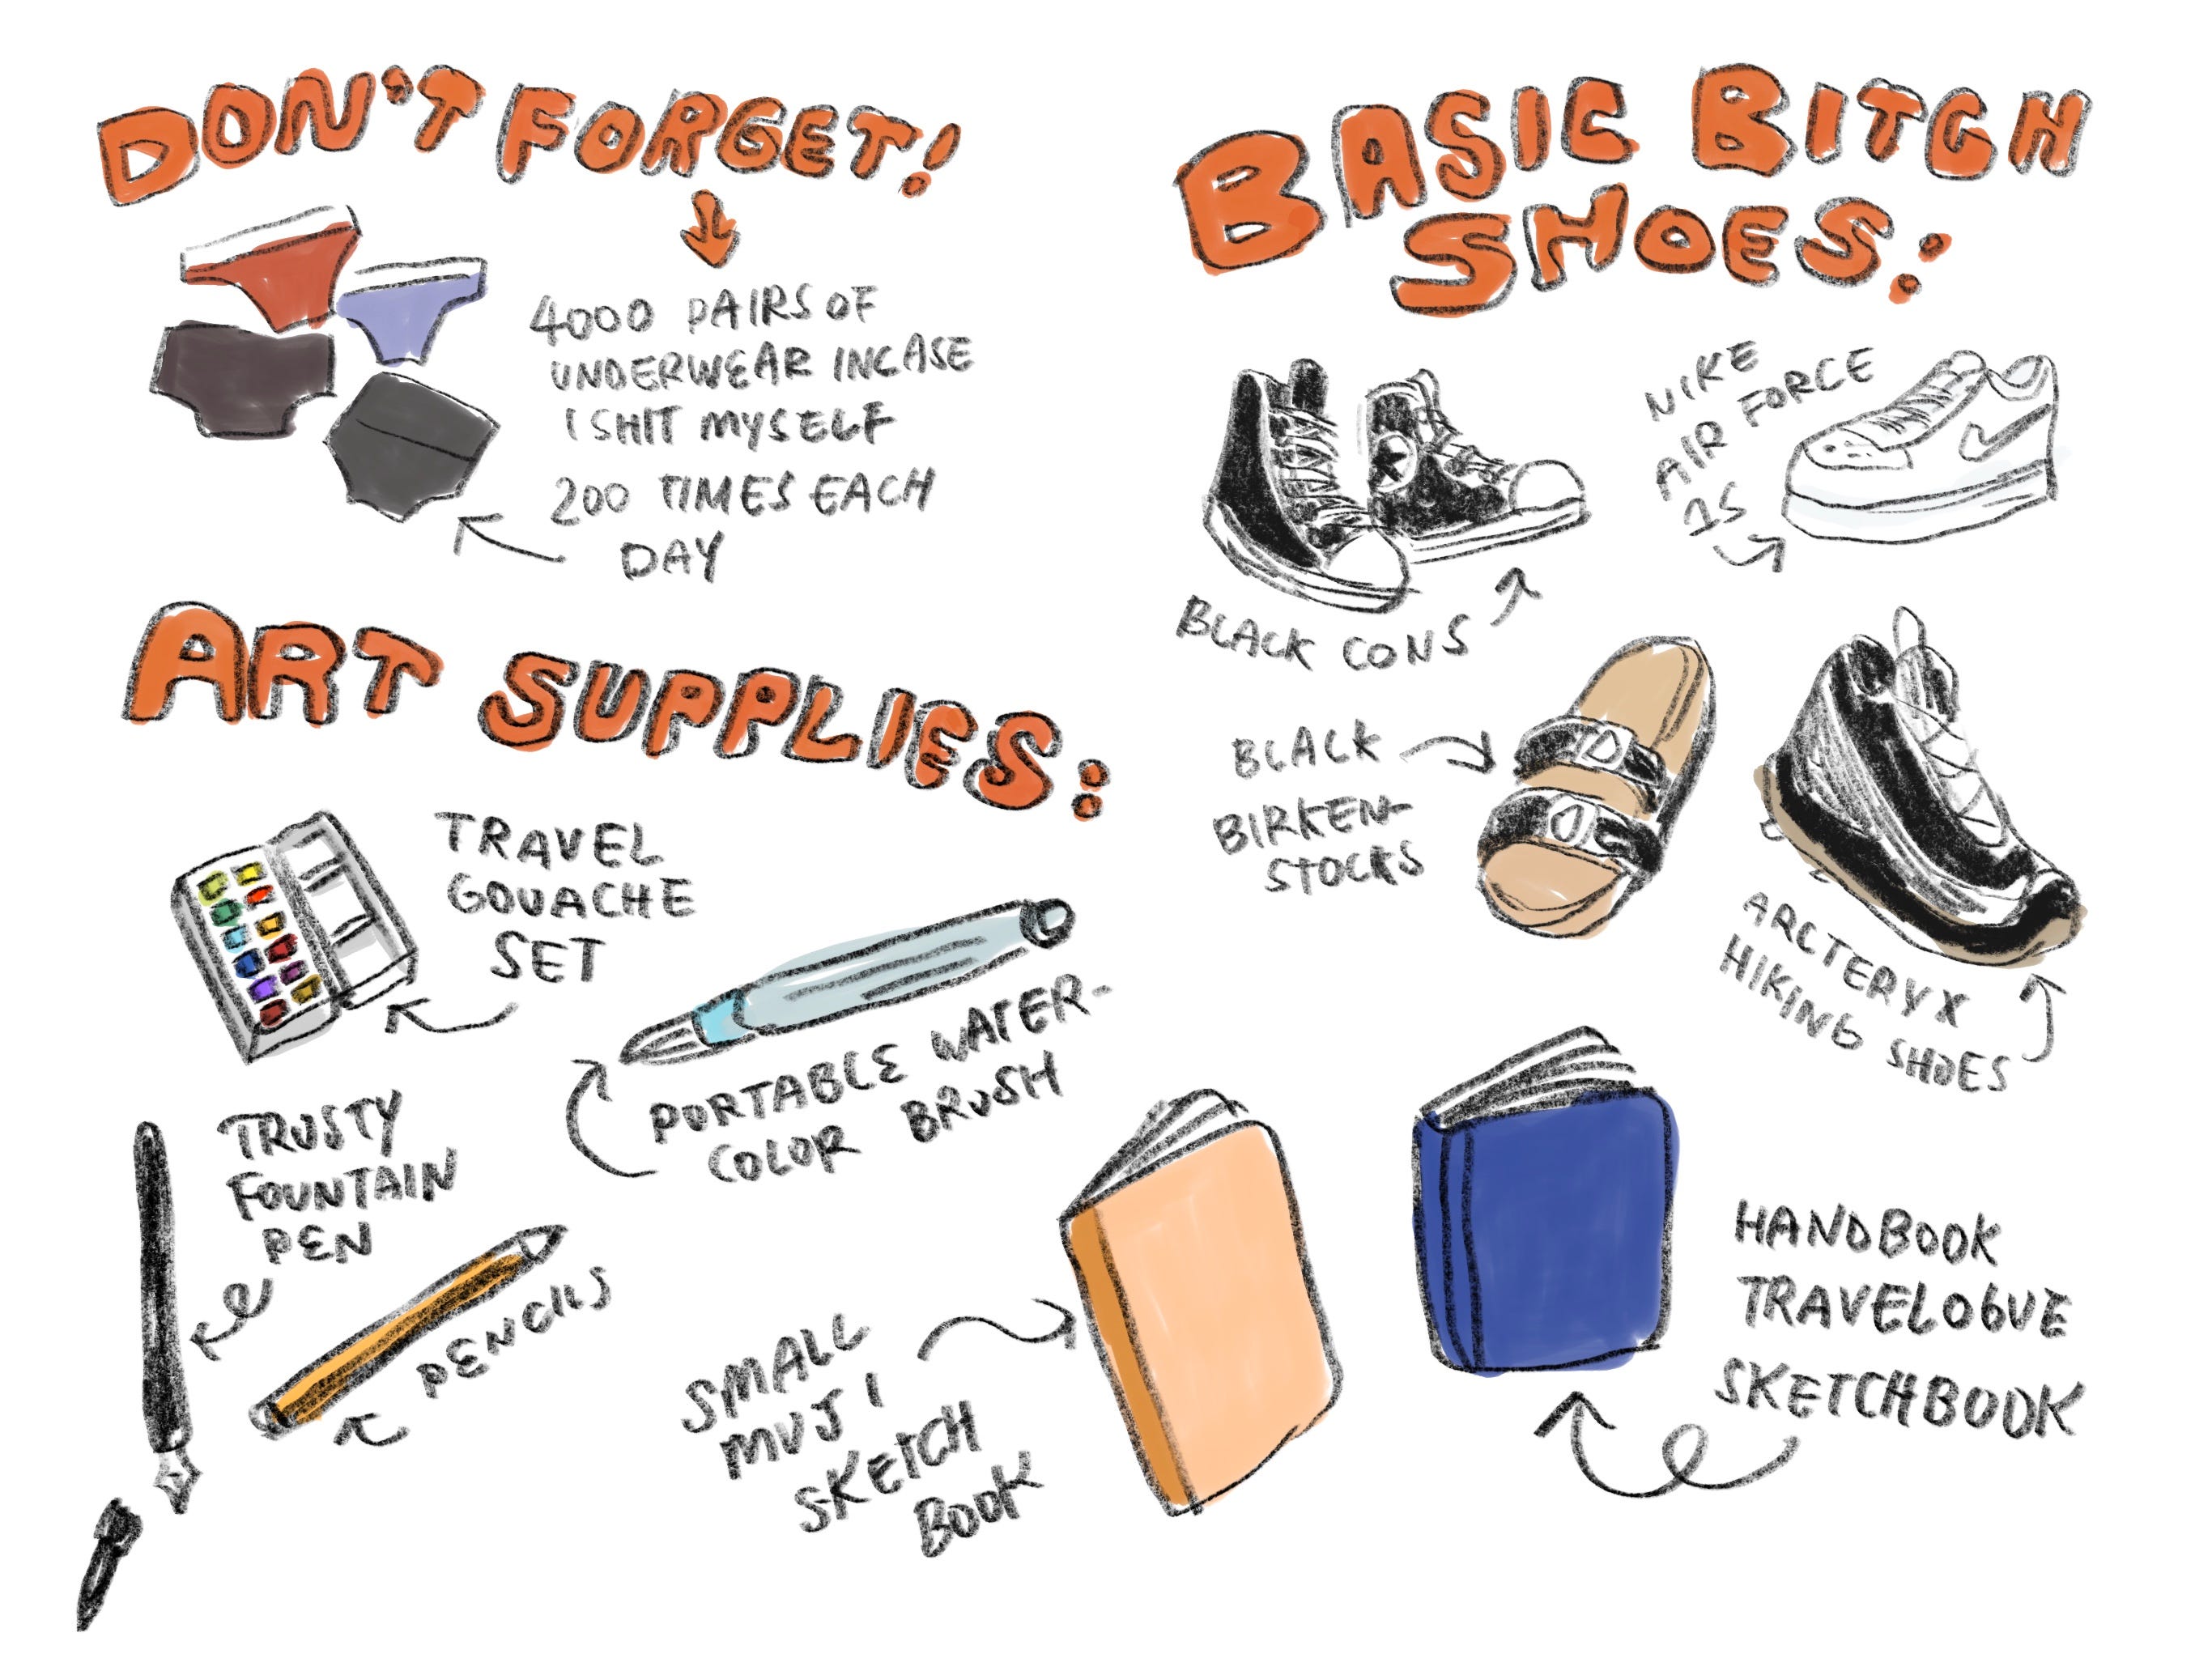 DON'T FORGET!
4000 PAIRS OF
UNDERWEAR INCASE
I SHIT MYSELF
200 TIMES EACH
DAY
ART SUPPLIES:
TRAVEL
GOUACHE
SET
PORTABLE WATER-
COLOR BRUSH
TRUSTY
FOUNTAIN
PEN
PENCILS
SMALL
MUJI
SKETCH
BOOK
HANDBOOK
TRAVELOGUE
SKETCHBOOK
BASIC BITCH
SHOES:
BLACK CONS
NIKE
AIR FORCE
1S
BLACK
BIRKEN-
STOCKS
ARCTERYX
HIKING SHOES